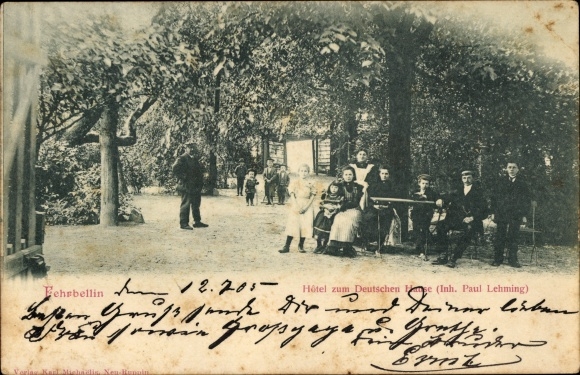 Fehrbellin
Hôtel zum Deutschen Hause (Inh. Paul Lehming)
den 12. 7 05
Besten Gruß sende Dir und Deiner lieben
Frau sowie Großpapa u. Grethe.
Dein Bruder
Ernst
Verlag Karl Michaelis, Neu-Ruppin